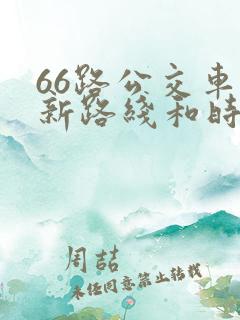 66路公交车
新路线和时
周喆
未经同意禁止转载